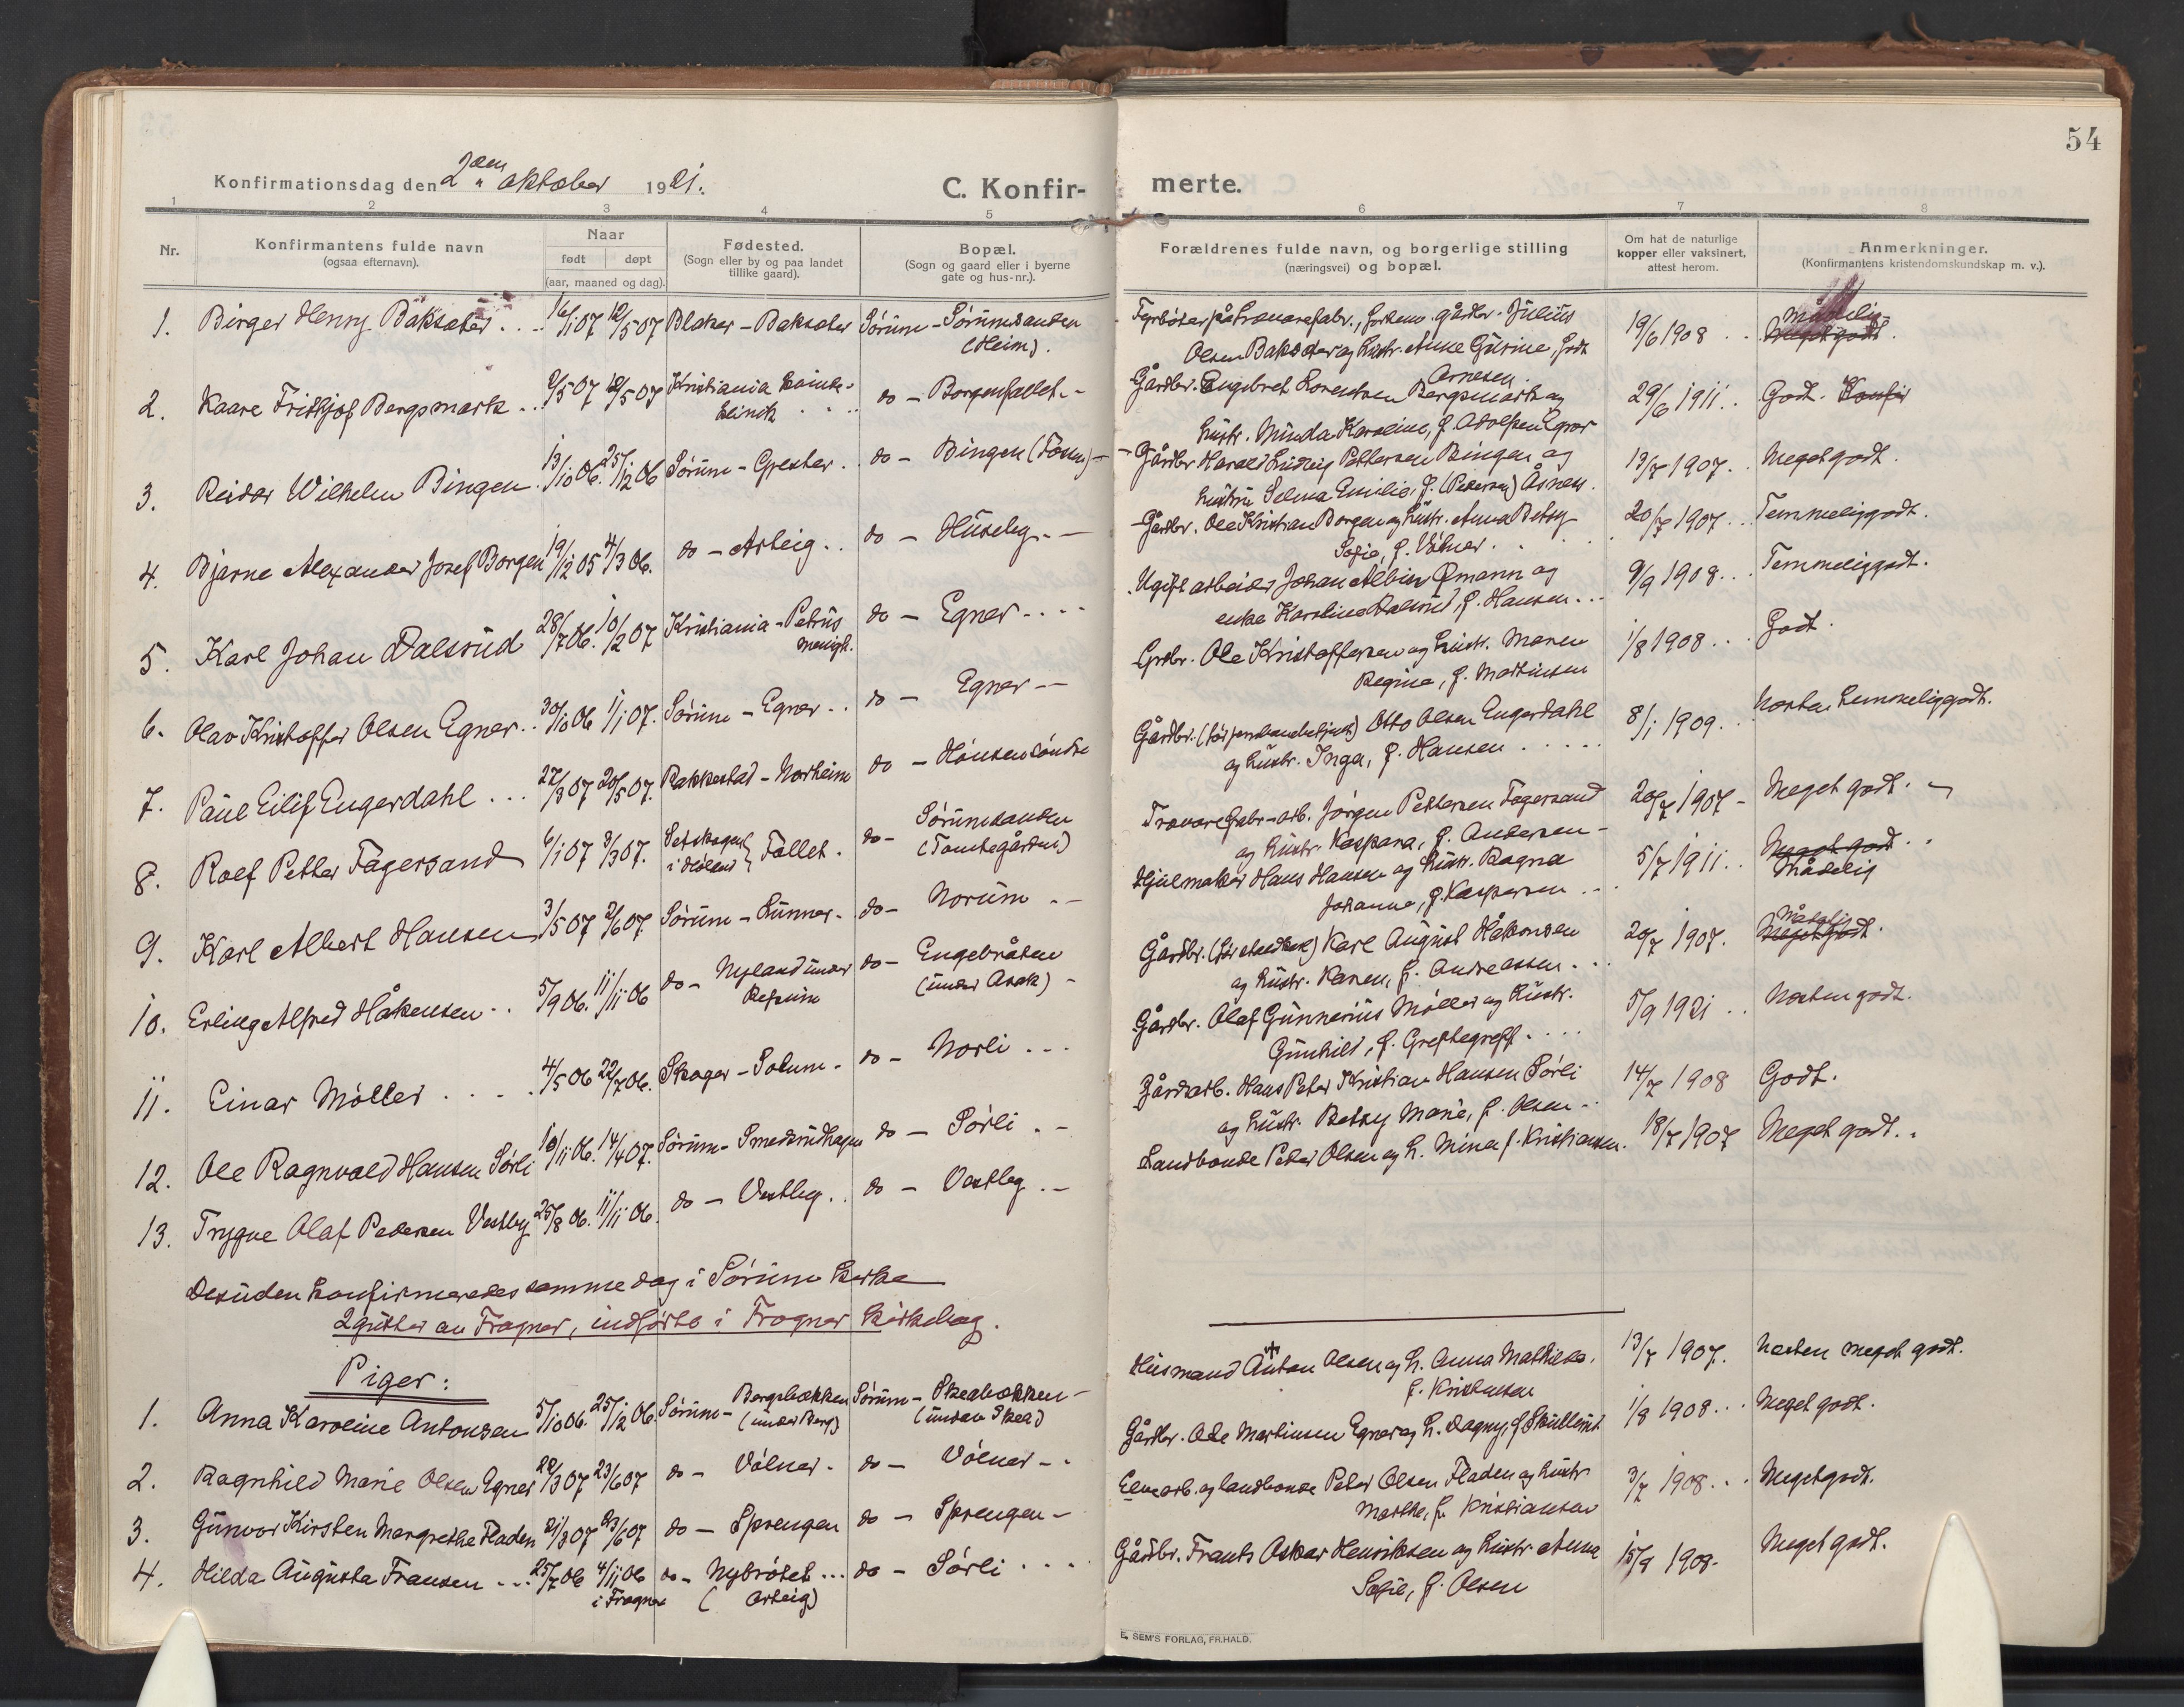 54
Konfirmationsdag den 2den oktober 1921.
C. Konfir-
merte.
1 2 3 4 5 6 7 8
Nr.
Konfirmantens fulde navn
(ogsaa efternavn).
Naar
født døpt
(aar, maaned og dag).
Fødested.
(Sogn eller by og paa landet
tillike gaard).
Bopæl.
(Sogn og gaard eller i byerne
gate og hus-nr.).
Forældrenes fulde navn, og borgerlige stilling
(næringsvei) og bopæl.
Om hat de naturlige
kopper eller vaksinert,
attest herom.
Anmerkninger.
(Konfirmantens kristendomskundskap m. v.).
1. Birger Henry Baksæter 16/1 07 12/5 07 Blaker - Baksæter Sørum - Sørumsanden
(Heim).
Julius
Olsen Baksæter og hustr. Anne Gusine, født
Arnesen
19/6 1908
Mådelig
Meget godt.
2. Kaare Frithjof Bergsmark 2/5 07 12/5 07 Kristiania kvinde-
klinik
do - Borgenfallet
Gårdbr. Engebret Lorentsen Bergsmark og
hustr. Minda Karoline, f. Adolfsen Egner
29/6 1911. Godt. Konfir
3. Reidar Wilhelm Bingen 13/10 06. 25/12 06 Sørum - Grester do - Bingen (Tosen)
Gårdbr Harald Ludvig Pettersen Bingen og
hustru Selma Emilie, f. (Pedersen) Åsnes.
13/7 1907. Meget godt.
4. Bjarne Alexander Josef Borgen 19/12 05 4/3 06. do - Asteig do - Huseby
Gårdbr. Ole Kristian Borgen og hustr. Anna Betsy
Sofie, f. Vølner.
20/7 1907. Temmelig godt.
5. Karl Johan Dalsrud 28/7 06. 10/2 07 Kristiania - Petrus
menigh.
do - Egner
Ugift arbeider Johan Albin Ømann og
enke Karoline Dalsrud, f. Hansen
9/9 1908. Temmelig godt.
6. Olav Kristoffer Olsen Egner 30/10 06 1/1 07. Sørum - Egner do - Egner
Grdbr. Ole Kristoffersen og hustr. Maren
Regine, f. Martinsen
1/8 1908. Godt.
7. Paul Eilif Engerdahl 27/3 07 20/5 07. Rakkestad - Norheim do - Hønsen søndre
Gårdbr. Otto Olsen Engerdahl
og hustr. Inga, f. Hansen
8/1 1909. Næsten temmelig godt.
8. Rolf Petter Fagersand 6/1 07 3/3 07. Setskogen
i Høland Fallet. do- Sørumsanden
(Tomtegården)
Trævarefabr-arb. Jørgen Pettersen Fagersand
og hustr. Kaspara, f. Andersen
20/7 1907 - Meget godt.
9. Karl Albert Hansen 3/5 07 2/6 07. Sørum - Lunner do- Norum
Hjulmaker Hans Hansen og hustr. Ragna
Johanne, f. Kaspersen
5/7 1911. Meget godt
Mådelig
10. Erling Alfred Håkensen 5/9 06. 11/11 06 do - Nyland under
Refsum
do- Engebråten
(under Asak)
Gårdbr. Karl August Håkonsen
og hustr. Karen, f. Andreassen
20/7 1907. Mådelig
Meget godt.
11. Einar Møller 4/5 06 22/7 06. Skoger - Solum. do - Norli
Gårdbr. Olaf Gunnerius Møller og hustr.
Gunhild, f. Greftegreff
5/9 1921 Næsten godt.
12. Ole Ragnvald Hansen Sørli 10/11 06. 14/4 07. Sørum - Smedsrudhagen do - Sørli
Gårdarb. Hans Peter Kristian Hansen Sørli
og hustr. Betsy Marie, f. Olsen
14/7 1908 Godt.
13. Trygve Olaf Pedersen Vestby 25/8 06. 11/11 06. do - Vestby do - Vestby
Landbonde Peder Olsen og h. Mina f. Kristiansen.
18/7 1907 Meget godt.
Desuden konfirmeredes samme dag i Sørum kirke
2 gutter av Frogner, indførte i Frogner kirkebog.
Piger:
1. Anna Karoline Antonsen 5/10 06. 25/12 06. Sørum - Bergsbækken
(under Berg)
Sørum - Skeabækken
(under Skea)
Husmand Anton Olsen og h. Anna Mathilde.
f. Kristensen
13/7 1907. Næsten meget godt.
2. Ragnhild Marie Olsen Egner 22/3 07 23/6 07 do - Vølner. do - Vølner
Gårdbr. Ole Martinsen Egner og h. Dagny, f. Skullerud
1/8 1908. Meget godt.
3. Gunvor Kirsten Margrethe Fladen 21/3 07 23/6 07 do - Sprengen do - Sprengen
Elvearb. og landbonde Peter Olsen Fladen og hustr
Marthe, f. Kristiansen
3/7 1908. Meget godt.
4. Hilda Augusta Fransen 25/7 06 4/11 06 do - Nybrøtet do - Sørli
i Frogner ( Asteig)
Gårdbr. Frants Oskar Henriksen og hustr Anna
Sofie, f. Olsen
15/9 1908. Meget godt.
E. SEM'S FORLAG, FR.HALD.